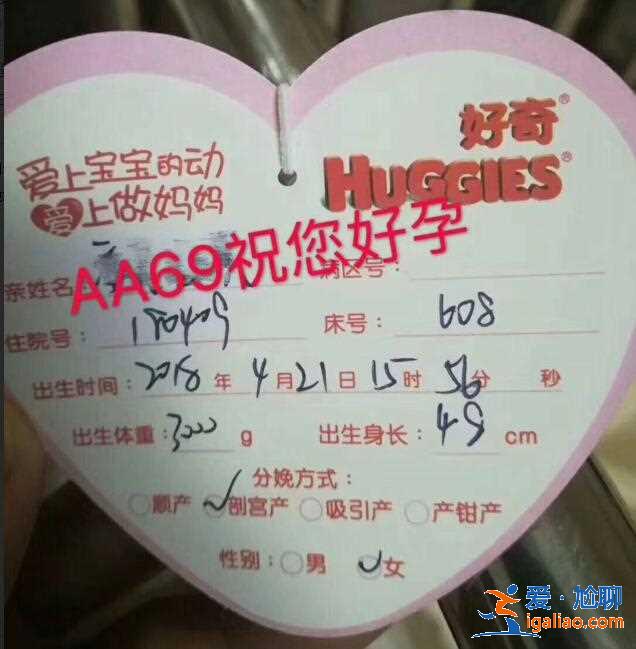 好奇®
爱上宝宝的动
HUGGIES®
爱上做妈妈
AA69祝您好孕
亲姓名
病区号:
住院号: 180409
床号: 608
出生时间: 2018 年 4 月 21 日 15 时 56 分 秒
出生体重: 3000 g 出生身长: 49 cm
分娩方式:
顺产 剖宫产 吸引产 产钳产
性别: 男 女
爱·尬聊
igaliao.com